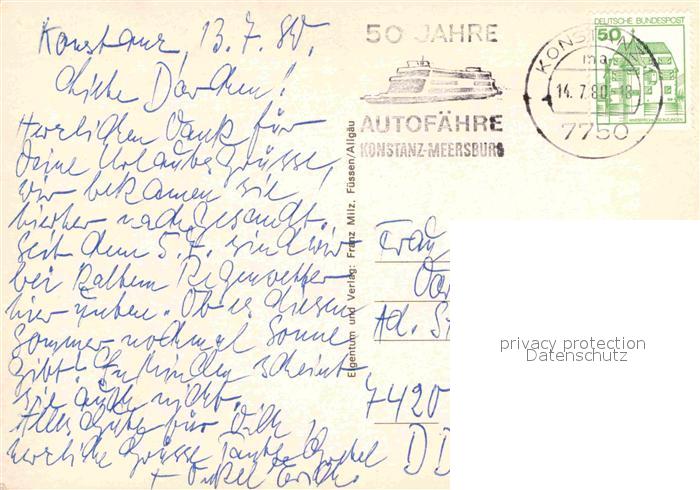 Konstanz, 13.7.80.
Liebe Dorchen!
Herzlichen Dank für
Deine Urlaubsgrüsse,
wir bekamen sie
hierher nachgesandt.
Seit dem 5.7. sind wir
bei kaltem Regenwetter
hier unten. Ob es diesen
Sommer nochmal Sonne
gibt? In scheint
sie auch nicht.
Alles Gute für Dich!
Herzliche Grüsse Tante
+ Onkel Erich.
50 JAHRE
AUTOFÄHRE
KONSTANZ-MEERSBURG
KONSTANZ
14.7.80-18
7750
DEUTSCHE BUNDESPOST
50
Eigentum und Verlag: Franz Milz, Füssen/Allgäu
Frau
Ad. St
7420
DD
privacy protection
Datenschutz